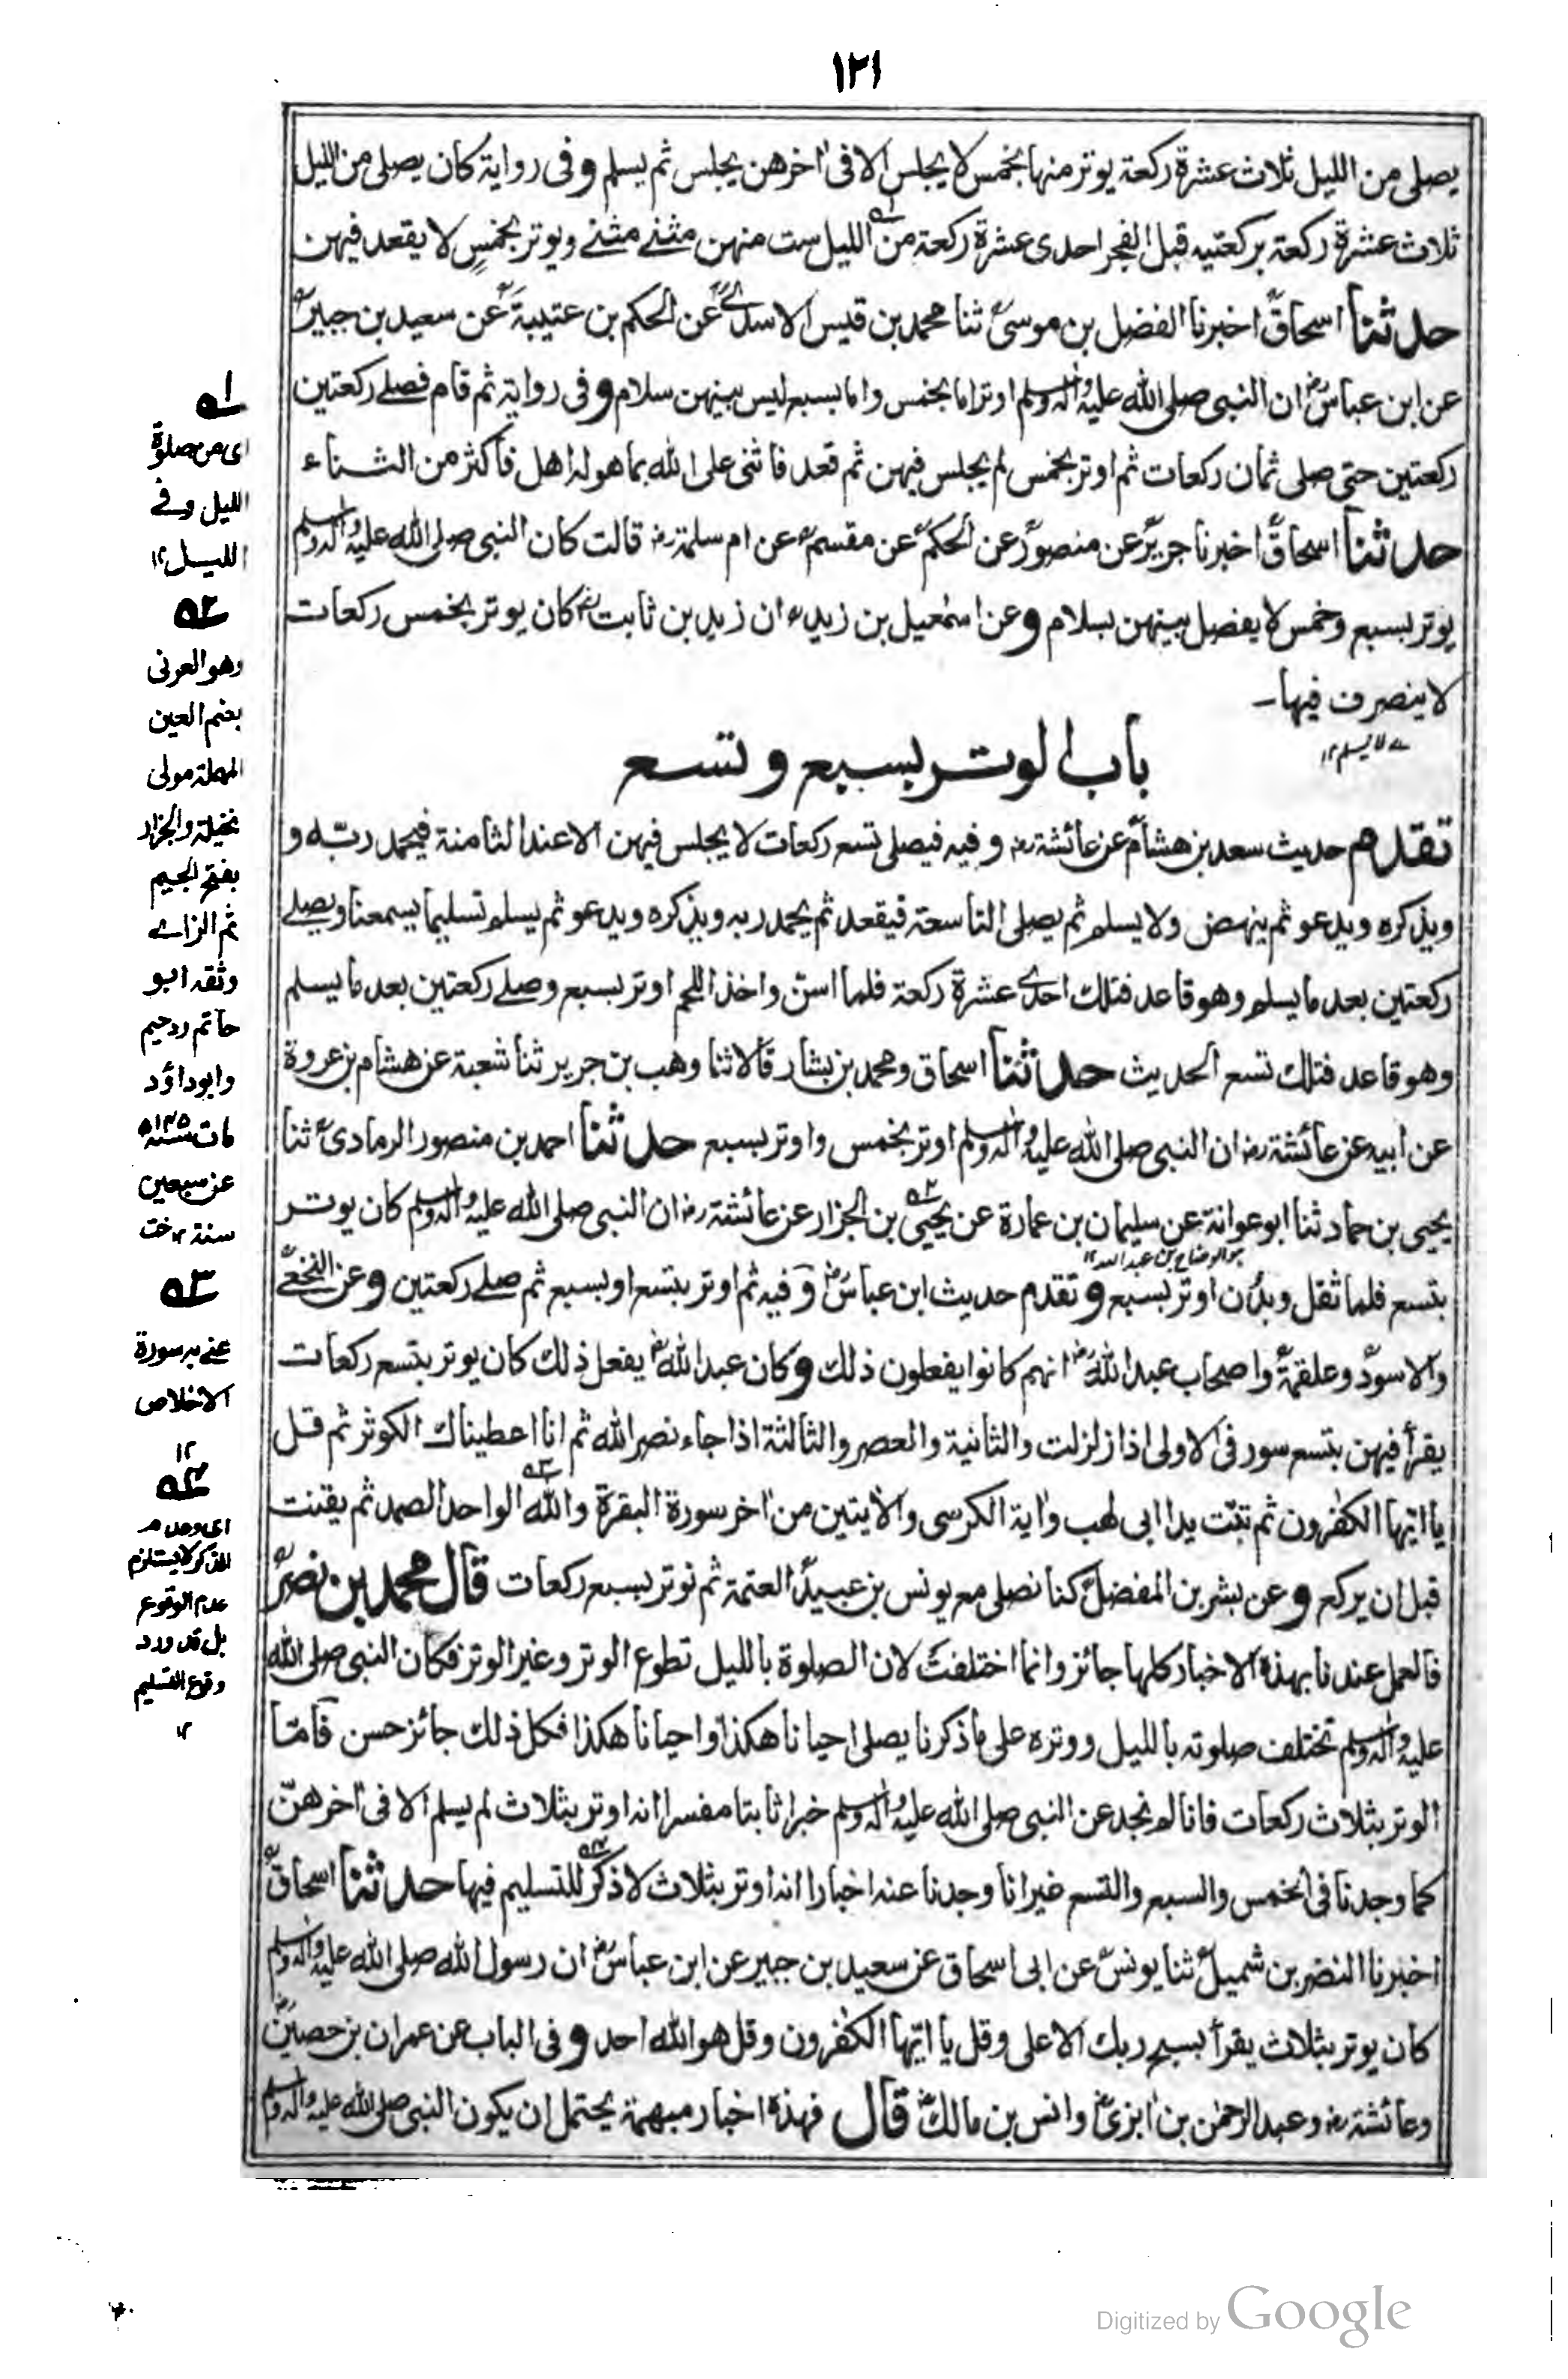 ١٢١
يصلى من الليل ثلاث عشرة ركعة يوتر منها بخمس لا يجلس الا فى اخرهن يجلس ثم يسلم و فى رواية كان يصلى من الليل
ثلاث عشرة ركعة بركعتيه قبل الفجر احدى عشرة ركعة من الليل ست منهن مثنے مثنے ويوتر بخمسٍ لا يقعد فيهن
حدثنا اسحاق اخبرنا الفضل بن موسى ثنا محمد بن قيس الاسدے عن الحكم بن عتيبة عن سعيد بن جبير
عن ابن عباس ان النبى صلى الله عليه وآله وسلم اوتر اما بخمس واما بسبع ليس بينهن سلام و فى رواية ثم قام فصلے ركعتين
ركعتين حتى صلى ثمان ركعات ثم اوتر بخمس لم يجلس فيهن ثم قعد فاثنى على الله بما هو له اهل فاكثر من الثناء
حدثنا اسحاق اخبرنا جرير عن منصور عن الحكم عن مقسم عن ام سلمة قالت كان النبى صلى الله عليه وآله وسلم
يوتر بسبع وخمس لا يفصل بينهن بسلام و عن اسمٰعيل بن زيد ان زيد بن ثابت كان يوتر بخمس ركعات
لا ينصرف فيها ـ
ے لا يسلم ١٢
باب الوتر بسبع و تسع
تقدم حديث سعد بن هشام عن عائشة و فيه فيصلى تسع ركعات لا يجلس فيهن الا عند الثامنة فيحمد ربّه و
ويذكره ويدعو ثم ينهض ولا يسلم ثم يصلى التاسعة فيقعد ثم يحمد ربه ويذكره ويدعو ثم يسلم تسليما يسمعنا ويصلے
ركعتين بعد ما يسلم وهو قاعد فتلك احدے عشرة ركعة فلما اسنّ واخذ اللحم اوتر بسبع وصلے ركعتين بعد ما يسلم
وهو قاعد فتلك تسع الحديث حدثنا اسحاق ومحمد بن بشار قالا ثنا وهب بن جرير ثنا شعبة عن هشام بن عروة
عن ابيه عن عائشة ان النبى صلى الله عليه وآله وسلم اوتر بخمس واوتر بسبع حدثنا احمد بن منصور الرمادى ثنا
يحيى بن حماد ثنا ابو عوانة عن سليمان بن عمارة عن يحيى بن الجزار عن عائشة ان النبى صلى الله عليه وآله وسلم كان يوتر
هو الوضاح بن عبد الله ١٢
بتسع فلما ثقل وبدّن اوتر بسبع و تقدم حديث ابن عباس و فيه ثم اوتر بتسع او بسبع ثم صلے ركعتين و عن النخعے
والاسود وعلقمة واصحاب عبد الله انهم كانوا يفعلون ذلك و كان عبد الله يفعل ذلك كان يوتر بتسع ركعات
يقرأ فيهن بتسع سور فى الاولى اذا زلزلت والثانية والعصر والثالثة اذا جاء نصر الله ثم انا اعطيناك الكوثر ثم قل
يا ايّها الكٰفرون ثم تبّت يدا ابى لهب واٰية الكرسى والاٰيتين من اٰخر سورة البقرة والله الواحد الصمد ثم يقنت
قبل ان يركع و عن بشر بن المفضل كنا نصلى مع يونس بن عبيد العتمة ثم نوتر بسبع ركعات قال محمد بن نصر
فالعمل عندنا بهذه الاخبار كلها جائز وانما اختلفت لان الصلوة بالليل تطوع الوتر وغير الوتر فكان النبى صلى الله
عليه وآله وسلم تختلف صلوته بالليل ووتره على ما ذكرنا يصلى احيانا هكذا واحيانا هكذا فكل ذلك جائز حسن فامّا
الوتر بثلاث ركعات فانا لم نجد عن النبى صلى الله عليه وآله وسلم خبرا ثابتا مفسرا انه اوتر بثلاث لم يسلم الا فى اٰخرهنّ
كما وجدنا فى الخمس والسبع والتسع غير انا وجدنا عنه اخبارا انه اوتر بثلاث لا ذكر للتسليم فيها حدثنا اسحاق
اخبرنا النضر بن شميل ثنا يونس عن ابى اسحاق عن سعيد بن جبير عن ابن عباس ان رسول الله صلى الله عليه وآله وسلم
كان يوتر بثلاث يقرأ بسبح ربك الاعلى وقل يا ايّها الكٰفرون وقل هو الله احد و فى الباب عن عمران بن حصين
وعائشة وعبد الرحمٰن بن ابزى وانس بن مالك قال فهذه اخبار مبهمة يحتمل ان يكون النبى صلى الله عليه وآله وسلم
١ه
اى من صلوة
الليل وفے
الليل ١٢
٢ه
وهو العرنى
بضم العين
المهملة مولى
بجيلة والجزار
بفتح الجيم
ثم الزاے
وثقه ابو
حاتم
وابوداؤد
مات سنة
عن سبعين
سنة ١٢
٣ه
عنے به سورة
الاخلاص
١٢
٤ه
اى وعدم
الذكر لا يستلزم
عدم الوقوع
بل قد ورد
وقوع التسليم
١٢
Digitized by Google